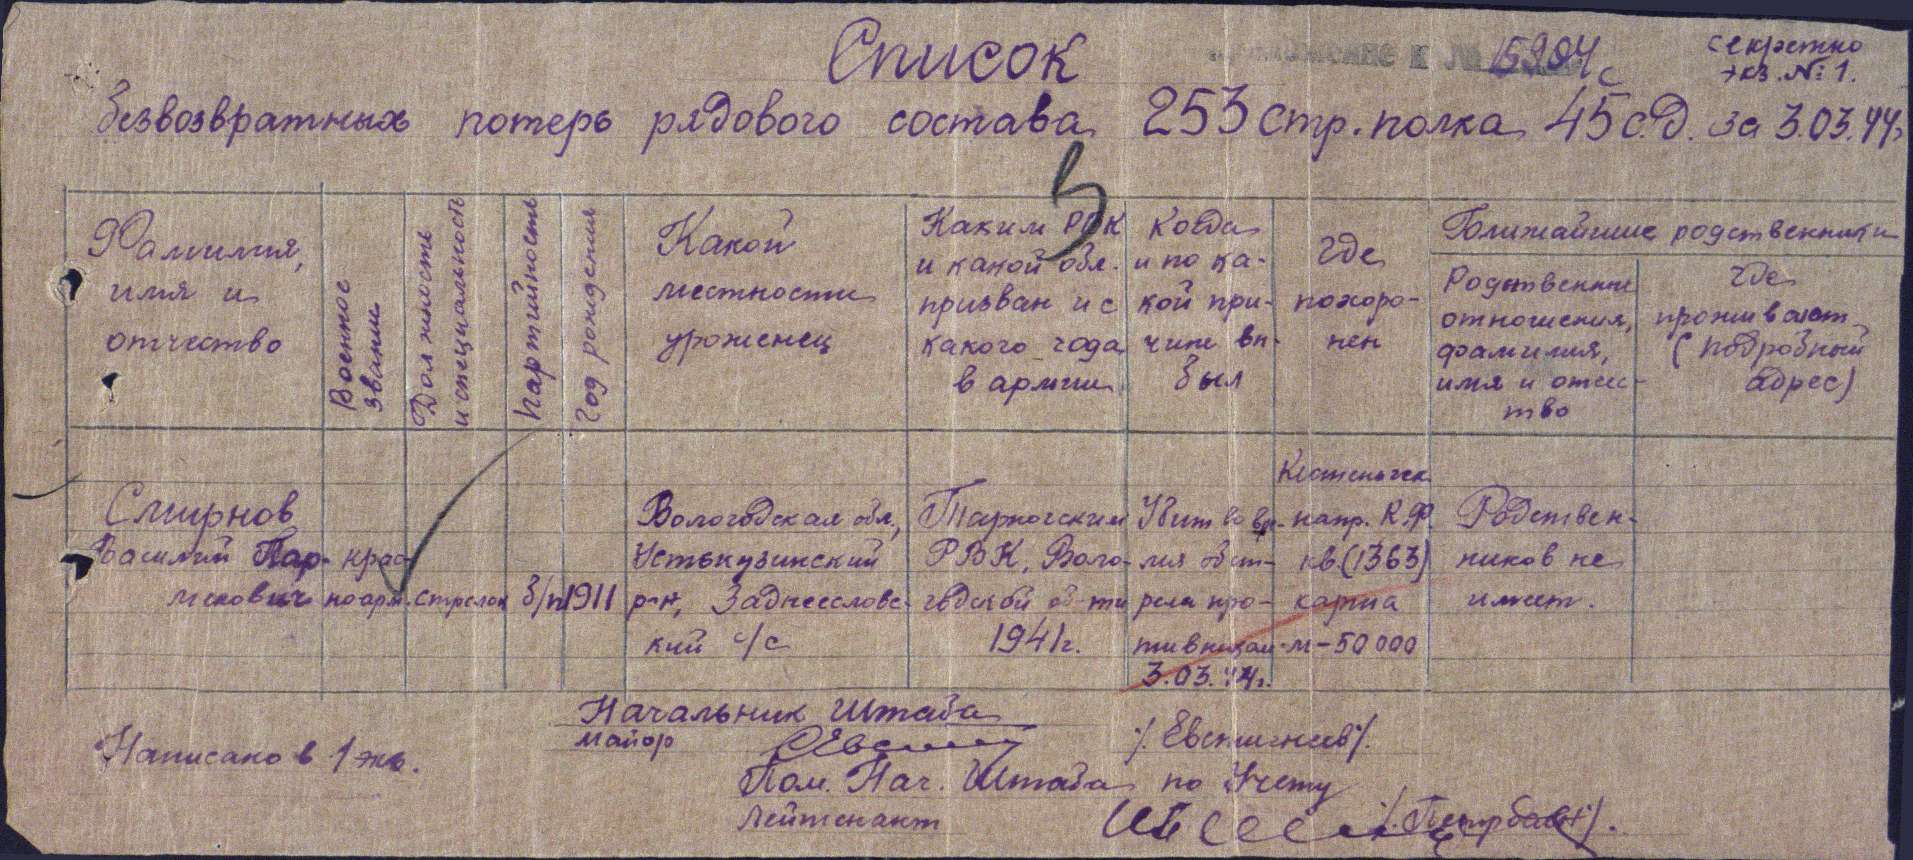 Список
Приложение к № 15904с
секретно
экз. № 1.
безвозвратных потерь рядового состава 253 стр. полка 45 с.д. за 3.03.44г.
Фамилия,
имя и
отчество
Военное
звание
Должность
и специальность
партийность
Год рождения
Какой
местности
уроженец
Каким РВК
и какой обл.
призван и с
какого года
в армии
Когда
и по ка-
кой при-
чине вы-
был
где
похоро-
нен
Ближайшие родственники
Родственные
отношения,
фамилия,
имя и отчес-
тво
где
проживают
(подробный
адрес)
Смирнов
Василий Пар-
менович
крас-
ноарм.
стрелок
б/п
1911
Вологодская обл.,
Устькубинский
р-н, Заднесловс-
кий с/с
Тарногским
РВК, Воло-
годской об-ти
1941г.
Убит во вре-
мя обст-
рела про-
тивником
3.03.44г.
Кестеньгск.
напр. К.Ф.
кв. (1363)
карта
м-50 000
Родствен-
ников не
имеет.
Написано в 1 экз.
Начальник штаба
майор
/Евстигнеев/.
Пом. Нач. Штаба по Учету
Лейтенант